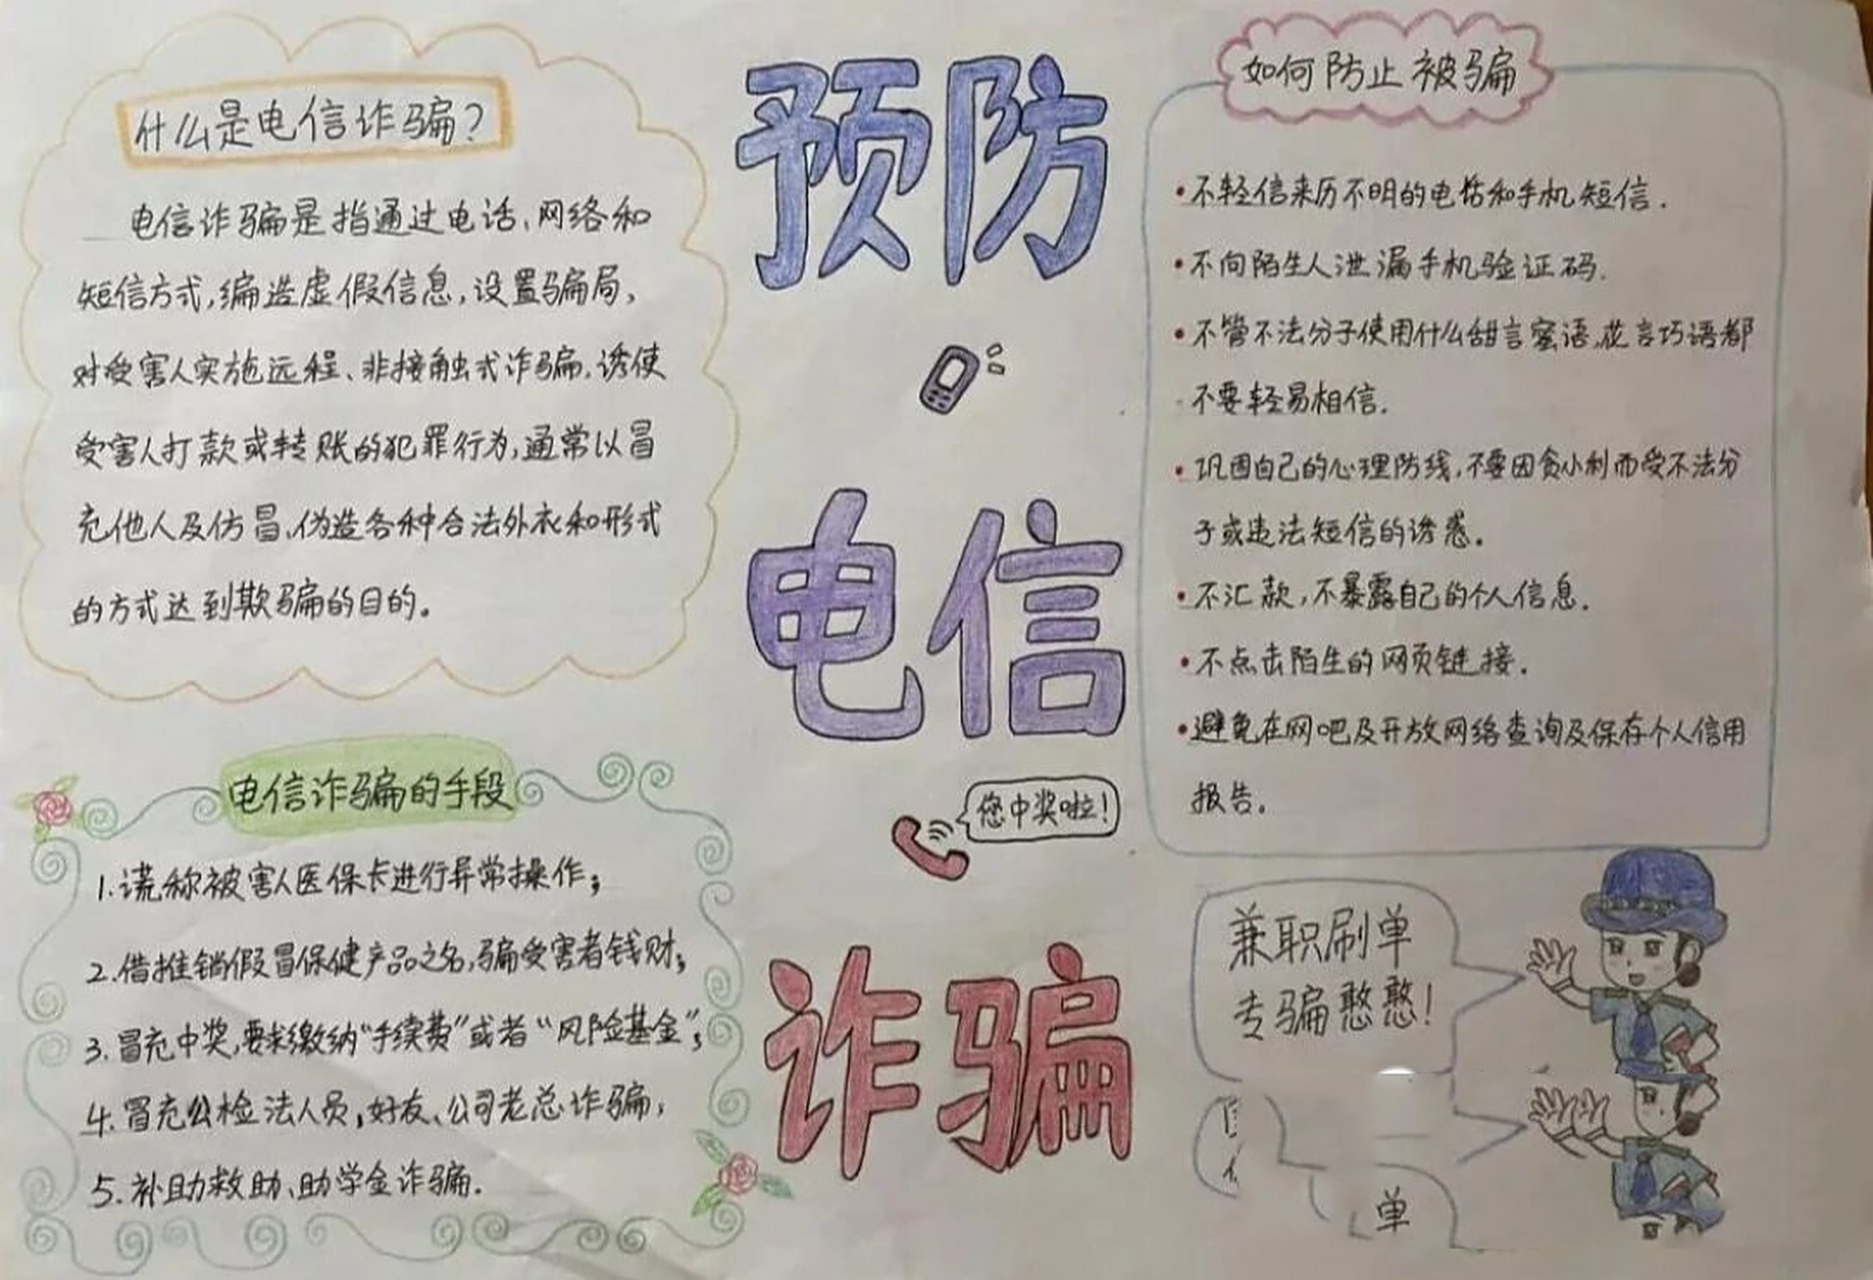 什么是电信诈骗?
电信诈骗是指通过电话、网络和
短信方式,编造虚假信息,设置骗局,
对受害人实施远程、非接触式诈骗,诱使
受害人打款或转账的犯罪行为,通常以冒
充他人及仿冒、伪造各种合法外衣和形式
的方式达到欺骗的目的。
电信诈骗的手段
1.谎称被害人医保卡进行异常操作;
2.借推销假冒保健产品之名,骗受害者钱财;
3.冒充中奖,要求缴纳"手续费"或者"风险基金";
4.冒充公检法人员,好友、公司老总诈骗,
5.补助救助、助学金诈骗.
预防
电信
您中奖啦!
诈骗
如何防止被骗
•不轻信来历不明的电话和手机短信.
•不向陌生人泄漏手机验证码.
•不管不法分子使用什么甜言蜜语,花言巧语都
不要轻易相信.
•巩固自己的心理防线,不要因贪小利而受不法分
子或违法短信的诱惑。
•不汇款,不暴露自己的个人信息.
•不点击陌生的网页链接.
•避免在网吧及开放网络查询及保存个人信用
报告。
兼职刷单
专骗憨憨!
单